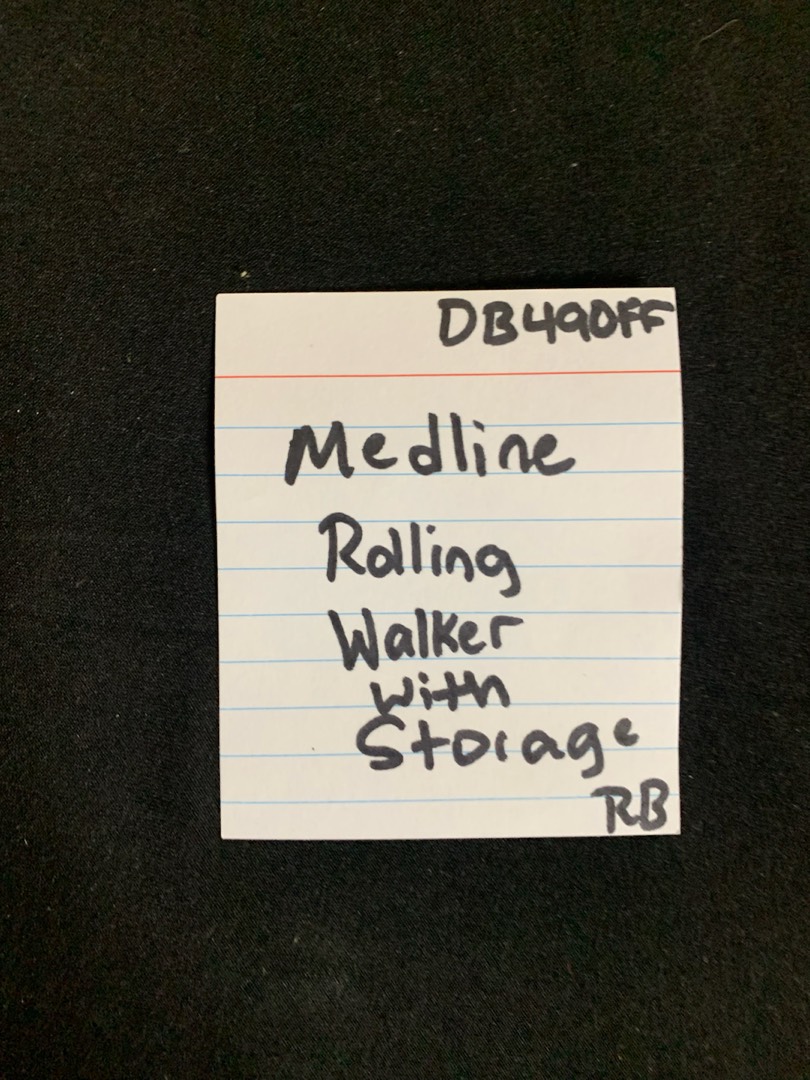 DB490FF
Medline
Rolling
Walker
with
Storage
RB